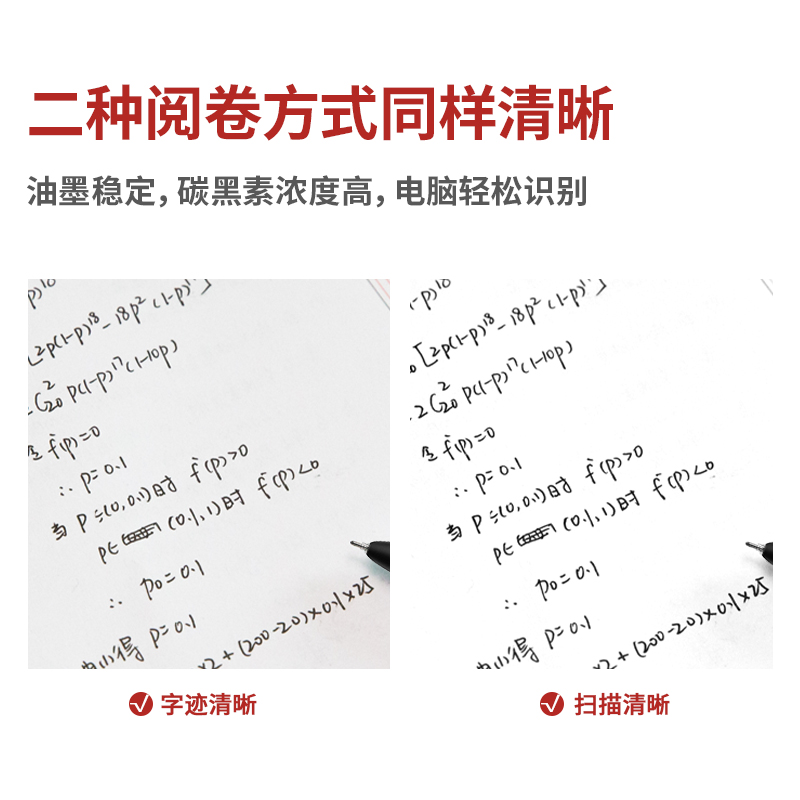 二种阅卷方式同样清晰
油墨稳定，碳黑素浓度高，电脑轻松识别
[2p(1-p)¹⁸-18p²(1-p)¹⁷]
2C²₂₀ p(1-p)¹⁷(1-10p)
令 f'(p)=0
∴ p=0.1
当 p∈(0,0.1)时 f'(p)>0
p∈ (0.1,1)时 f'(p)<0
∴ p₀=0.1
得 p=0.1
×2+(200-20)×0.1×25
字迹清晰
[2p(1-p)¹⁸-18p²(1-p)¹⁷]
2C²₂₀ p(1-p)¹⁷(1-10p)
令 f'(p)=0
∴ p=0.1
当 p∈(0,0.1)时 f'(p)>0
p∈ (0.1,1)时 f'(p)<0
∴ p₀=0.1
得 p=0.1
×2+(200-20)×0.1×25
扫描清晰